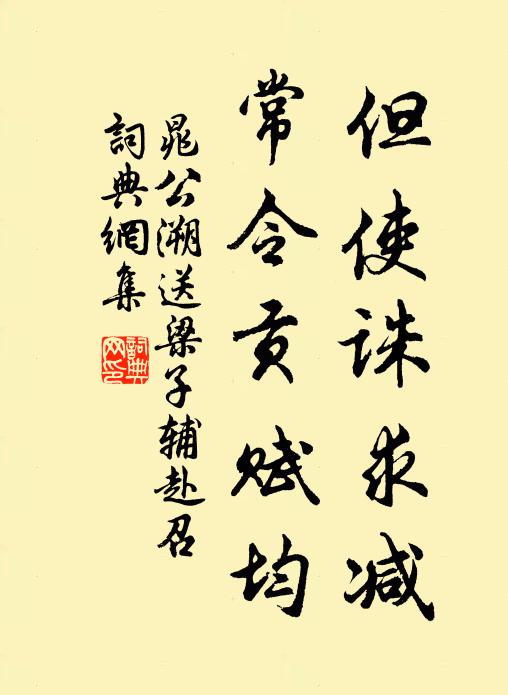 但使诛求减
常令贡赋均
晁公溯送梁子辅赴召
詞典網集
詞典网印